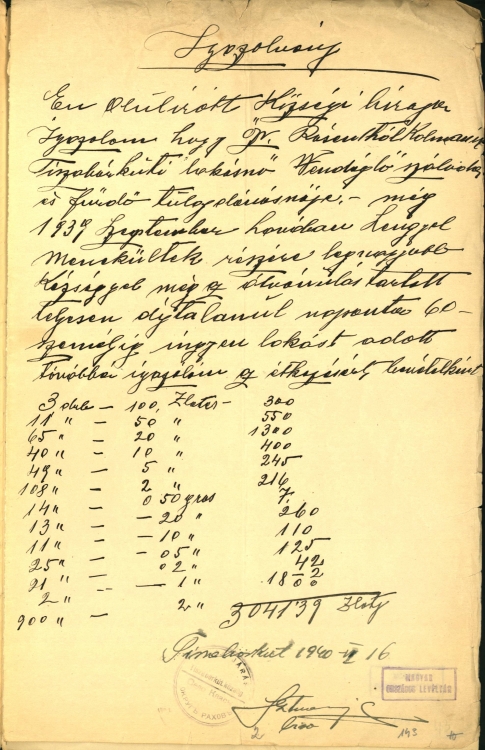 Igazolvány
Én alulírott Községi biró
Igazolom hogy Öv. Rosenthál Kálmán
Tiszabárkúti lakósnő Vendéglő szálloda
és fürdő tulajdonosnője, - még
1939 Szeptember havában Lengyel
Menekültek részére legnagyobb
Községgel még az átvonulás tartott
teljesen díjtalanúl naponta 60 -
személyig ingyen lakást adott
továbbá igazolom az étkezésért, bevételként
3 drb - 100, Zloter - 300
11 " - 50 " 550
65 " - 20 " 1300
40 " - 10 " 400
49 " - 5 " 245
108 " - 2 " 216
14 " - 0 50 gros 7.
13 " - 20 " 260
11 " - 10 " 110
25 " - 05 " 125
21 " - 02 " 42
2 " - 1 " 2
900 " 2 " 18 00
3041'39 Zloty
1940 II 16
MAGYAR
ORSZÁGOS LEVÉLTÁR
2
193